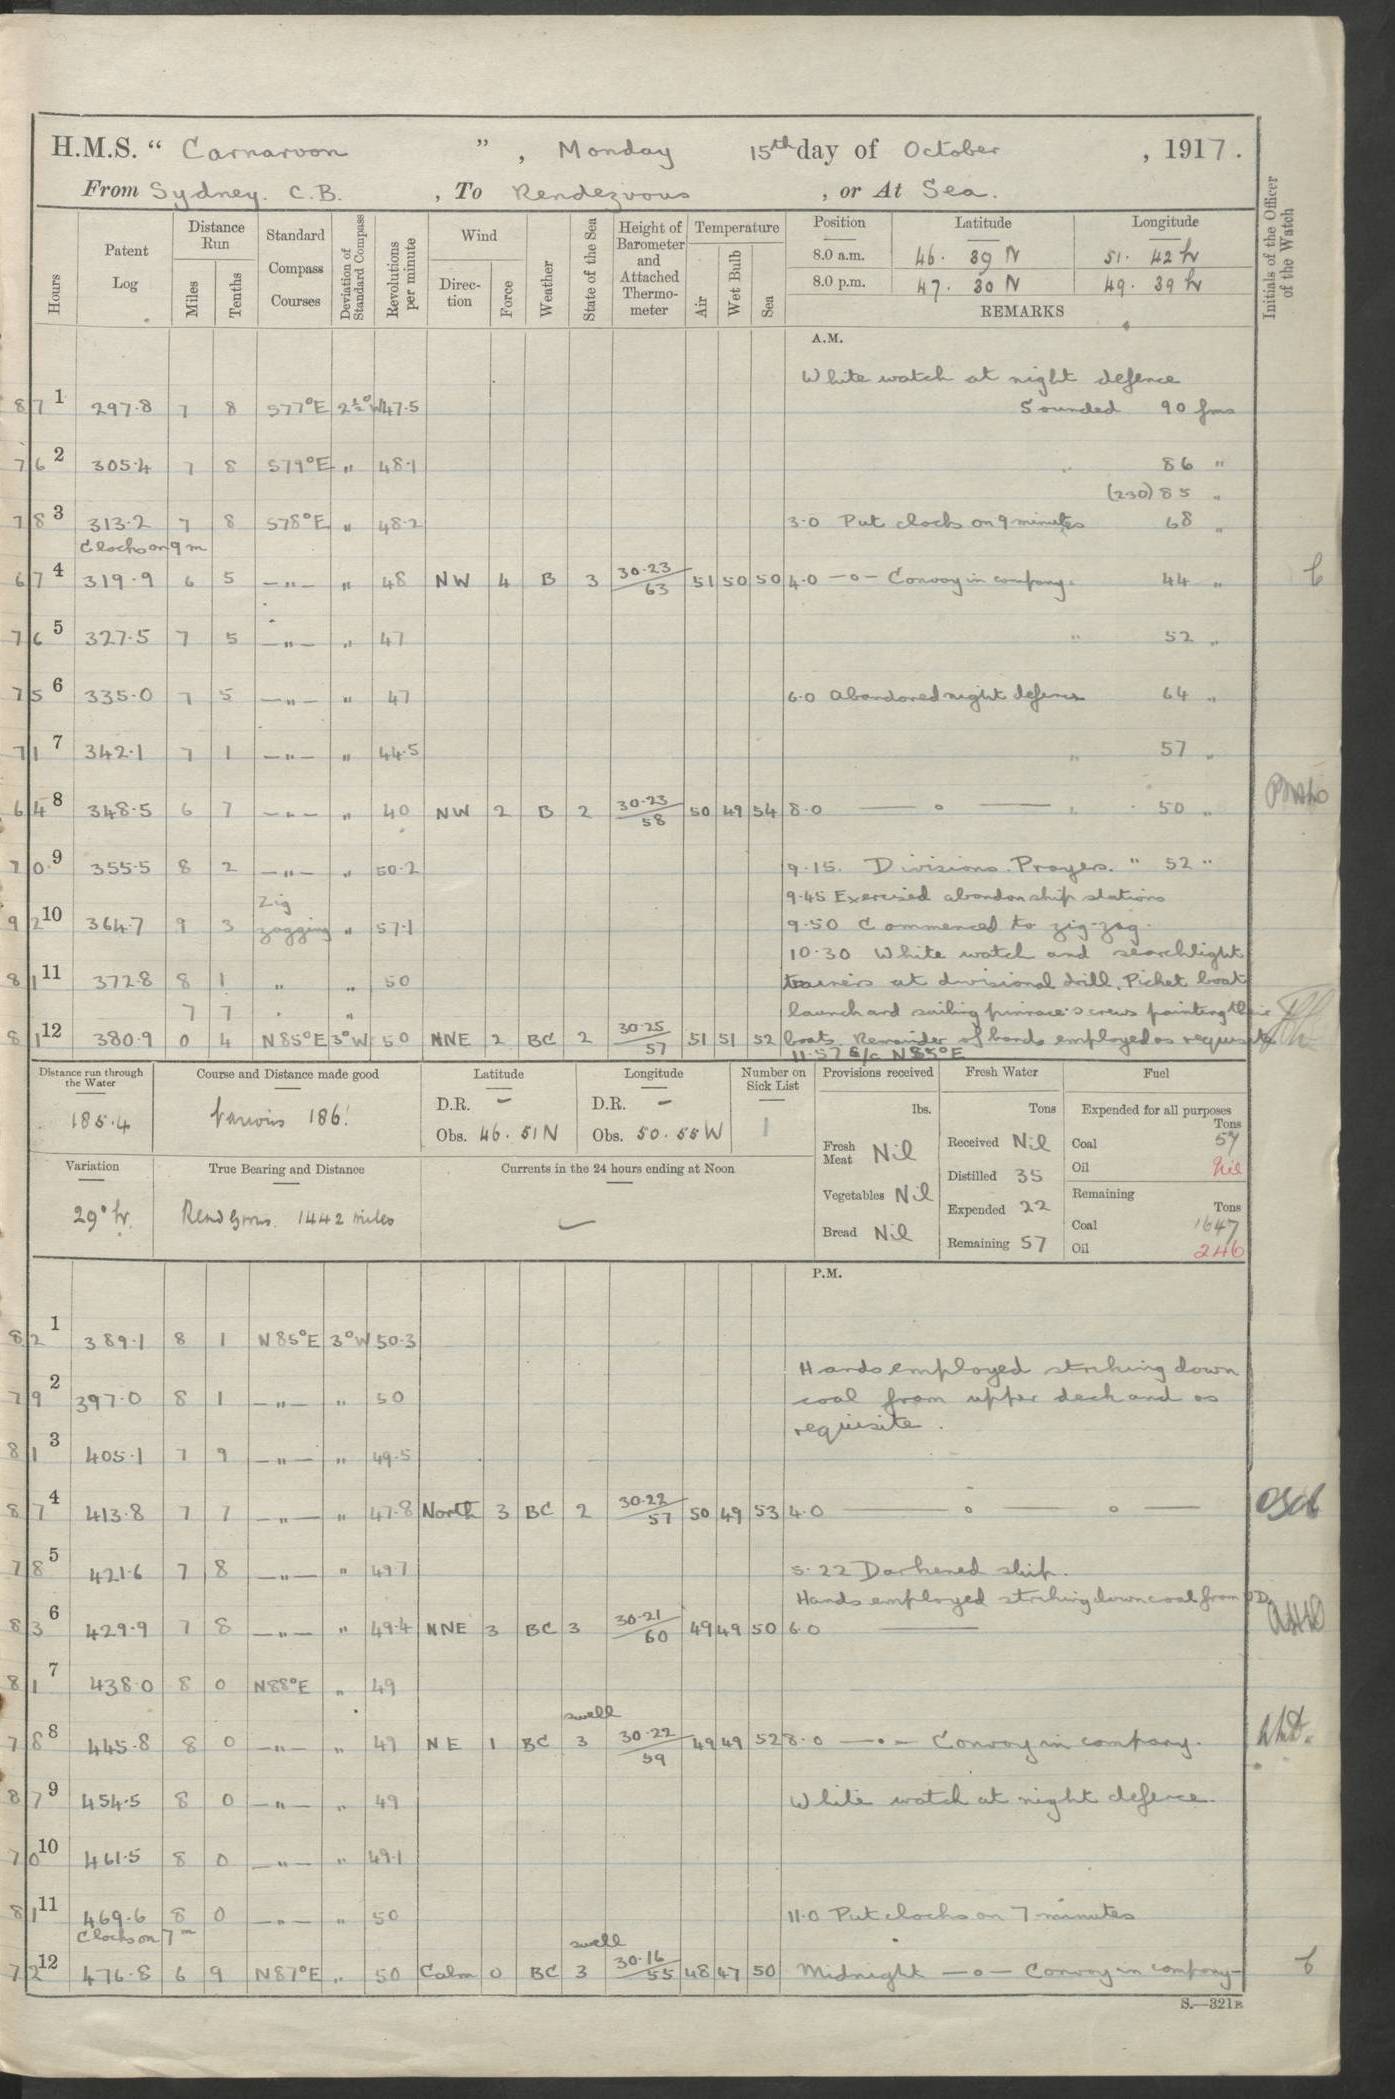 H.M.S. “ Carnarvon ” , Monday 15th day of October , 1917.
From Sydney. C.B. , To Rendezvous , or At Sea.
Hours
Patent Log
Distance Run
Miles
Tenths
Standard Compass Courses
Deviation of Standard Compass
Revolutions per minute
Wind
Direction
Force
Weather
State of the Sea
Height of Barometer and Attached Thermometer
Temperature
Air
Wet Bulb
Sea
Position Latitude Longitude
8.0 a.m. 46. 39 N 51. 42 W
8.0 p.m. 47. 30 N 49. 39 W
REMARKS
Initials of the Officer of the Watch
A.M.
White watch at night defence
8 7 1 297.8 7 8 S77°E 2½°W 47.5 Sounded 90 fms
7 6 2 305.4 7 8 S79°E " 48.1 " 86 "
(2.30) 85 "
7 8 3 313.2 7 8 S78°E " 48.2 3.0 Put clocks on 9 minutes 68 "
Clocks on 9 m
6 7 4 319.9 6 5 —"— " 48 NW 4 B 3 30.23/63 51 50 50 4.0 —o— Convoy in company. 44 "
7 6 5 327.5 7 5 —"— " 47 " 52 "
7 5 6 335.0 7 5 —"— " 47 6.0 Abandoned night defence 64 "
7 1 7 342.1 7 1 —"— " 44.5 " 57 "
6 4 8 348.5 6 7 —"— " 40 NW 2 B 2 30.23/58 50 49 54 8.0 —o— " 50 "
7 0 9 355.5 8 2 —"— " 50.2 9.15. Divisions. Prayers. " 52 "
9.45 Exercised abandon ship stations
9 2 10 364.7 9 3 Zig zagging " 57.1 9.50 Commenced to zig-zag.
10.30 White watch and searchlight
8 1 11 372.8 8 1 " " 50 trainers at divisional drill. Picket boat
7 7 " " launch and sailing pinnace's crews painting their
8 1 12 380.9 0 4 N85°E 3°W 50 NNE 2 BC 2 30.25/57 51 51 52 boats. Remainder of hands employed as requisite
11.57 a/c N85°E
Distance run through the Water
185.4
Course and Distance made good
Various 186'
Latitude
D.R. –
Obs. 46. 51 N
Longitude
D.R. –
Obs. 50. 55 W
Number on Sick List
1
Variation
29° W.
True Bearing and Distance
Rendezvous. 1442 miles
Currents in the 24 hours ending at Noon
Provisions received
lbs.
Fresh Meat Nil
Vegetables Nil
Bread Nil
Fresh Water
Tons
Received Nil
Distilled 35
Expended 22
Remaining 57
Fuel
Expended for all purposes
Tons
Coal 57
Oil Nil
Remaining
Tons
Coal 1647
Oil 246
P.M.
8 2 1 389.1 8 1 N85°E 3°W 50.3
Hands employed striking down
7 9 2 397.0 8 1 —"— " 50 coal from upper deck and as
requisite.
8 1 3 405.1 7 9 —"— " 49.5
8 7 4 413.8 7 7 —"— " 47.8 North 3 BC 2 30.22/57 50 49 53 4.0 —o—o—
7 8 5 421.6 7 8 —"— " 49.7 5.22 Darkened ship.
Hands employed striking down coal from UD.
8 3 6 429.9 7 8 —"— " 49.4 NNE 3 BC 3 30.21/60 49 49 50 6.0 —
8 1 7 438.0 8 0 N88°E " 49
swell
7 8 8 445.8 8 0 —"— " 49 NE 1 BC 3 30.22/59 49 49 52 8.0 —o— Convoy in company.
8 7 9 454.5 8 0 —"— " 49 White watch at night defence.
7 0 10 461.5 8 0 —"— " 49.1
8 1 11 469.6 8 0 —"— " 50 11.0 Put clocks on 7 minutes
Clocks on 7 m
swell
7 2 12 476.8 6 9 N87°E " 50 Calm 0 BC 3 30.16/55 48 47 50 Midnight —o— Convoy in company—
S.—321B